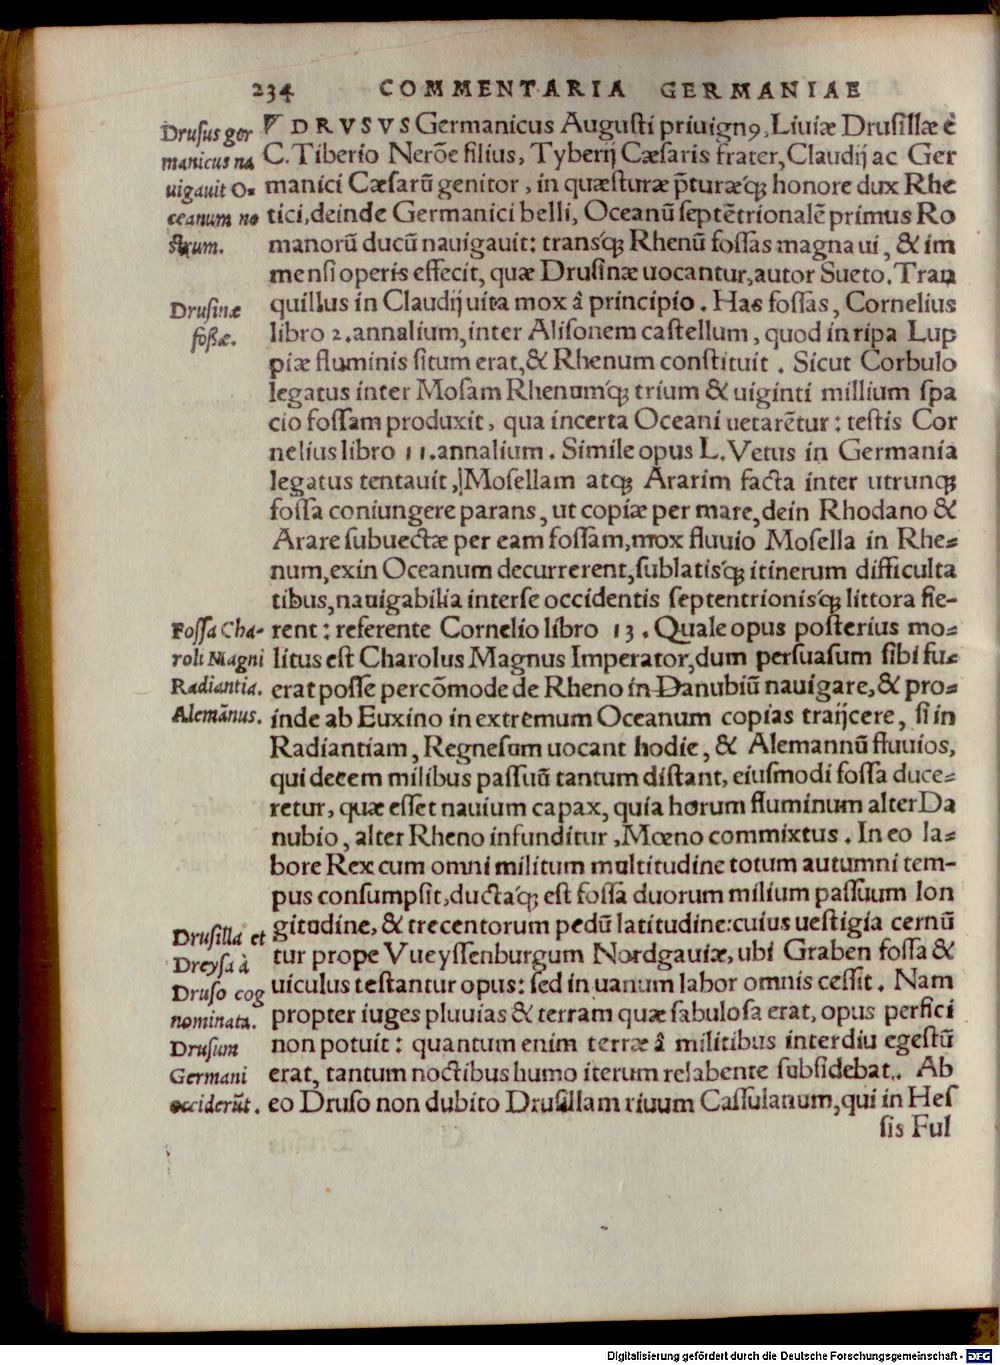 234 COMMENTARIA GERMANIAE
DRVSVS Germanicus Augusti priuignꝰ, Liuiæ Drusillæ è
C. Tiberio Nerōe filius, Tyberij Cæsaris frater, Claudij ac Ger
manici Cæsarū genitor, in quæsturæ p̄turæq́ꝫ honore dux Rhe
tici, deinde Germanici belli, Oceanū septētrionalē primus Ro
manorū ducū nauigauit: transq́ꝫ Rhenū fossas magna ui, & im
mensi operis effecit, quæ Drusinæ uocantur, autor Sueto. Tran
quillus in Claudij uita mox â principio. Has fossas, Cornelius
libro 2. annalium, inter Alisonem castellum, quod in ripa Lup
piæ fluminis situm erat, & Rhenum constituit. Sicut Corbulo
legatus inter Mosam Rhenumq́ꝫ trium & uiginti millium spa
cio fossam produxit, qua incerta Oceani uetarētur: testis Cor
nelius libro 11. annalium. Simile opus L. Vetus in Germania
legatus tentauit, Mosellam atqꝫ Ararim facta inter utrunqꝫ
fossa coniungere parans, ut copiæ per mare, dein Rhodano &
Arare subuectæ per eam fossam, mox fluuio Mosella in Rhe⸗
num, exin Oceanum decurrerent, sublatisq́ꝫ itinerum difficulta
tibus, nauigabilia inter se occidentis septentrionisq́ꝫ littora fie-
rent: referente Cornelio libro 13. Quale opus posterius mo⸗
litus est Charolus Magnus Imperator, dum persuasum sibi fu⸗
erat posse percōmode de Rheno in Danubiū nauigare, & pro⸗
inde ab Euxino in extremum Oceanum copias traijcere, si in
Radiantiam, Regnesum uocant hodie, & Alemannū fluuios,
qui decem milibus passuū tantum distant, eiusmodi fossa duce⸗
retur, quæ esset nauium capax, quia horum fluminum alter Da
nubio, alter Rheno infunditur, Mœno commixtus. In eo la⸗
bore Rex cum omni militum multitudine totum autumni tem-
pus consumpsit, ductaq́ꝫ est fossa duorum milium passuum lon
gitudine, & trecentorum pedū latitudine: cuius uestigia cernū
tur prope Vueyssenburgum Nordgauiæ, ubi Graben fossa &
uiculus testantur opus: sed in uanum labor omnis cessit. Nam
propter iuges pluuias & terram quæ sabulosa erat, opus perfici
non potuit: quantum enim terræ â militibus interdiu egestū
erat, tantum noctibus humo iterum relabente subsidebat. Ab
eo Druso non dubito Drusillam riuum Cassulanum, qui in Hes
sis Ful
Drusus ger
manicus na
uigauit O⸗
ceanum no
strum.
Drusinæ
foßæ.
Fossa Cha-
roli Magni
Radiantia.
Alemānus.
Drusilla et
Dreysa à
Druso cog
nominata.
Drusum
Germani
occiderūt.
Digitalisierung gefördert durch die Deutsche Forschungsgemeinschaft - DFG